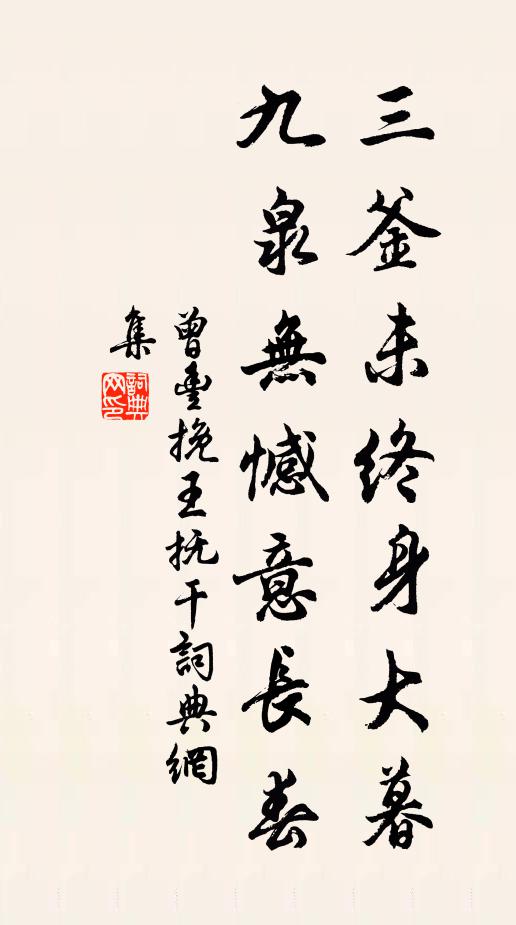 三釜未终身大暮
九泉無憾意長春
曾豊挽王抚干詞典網
集
詞典
网印